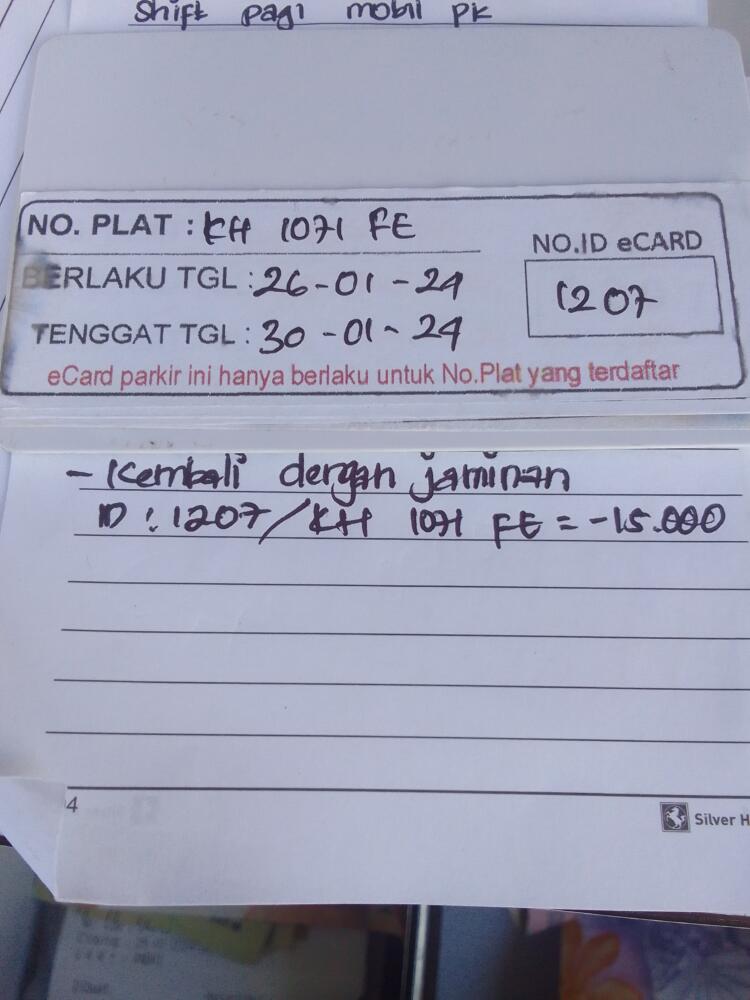 Shift pagi mobil PK
NO. PLAT : KH 1071 FE
NO.ID eCARD
BERLAKU TGL : 26-01-24
1207
TENGGAT TGL : 30-01-24
eCard parkir ini hanya berlaku untuk No.Plat yang terdaftar
- Kembali dengan jaminan
ID : 1207 / KH 1071 FE = -15.000
4
Silver H